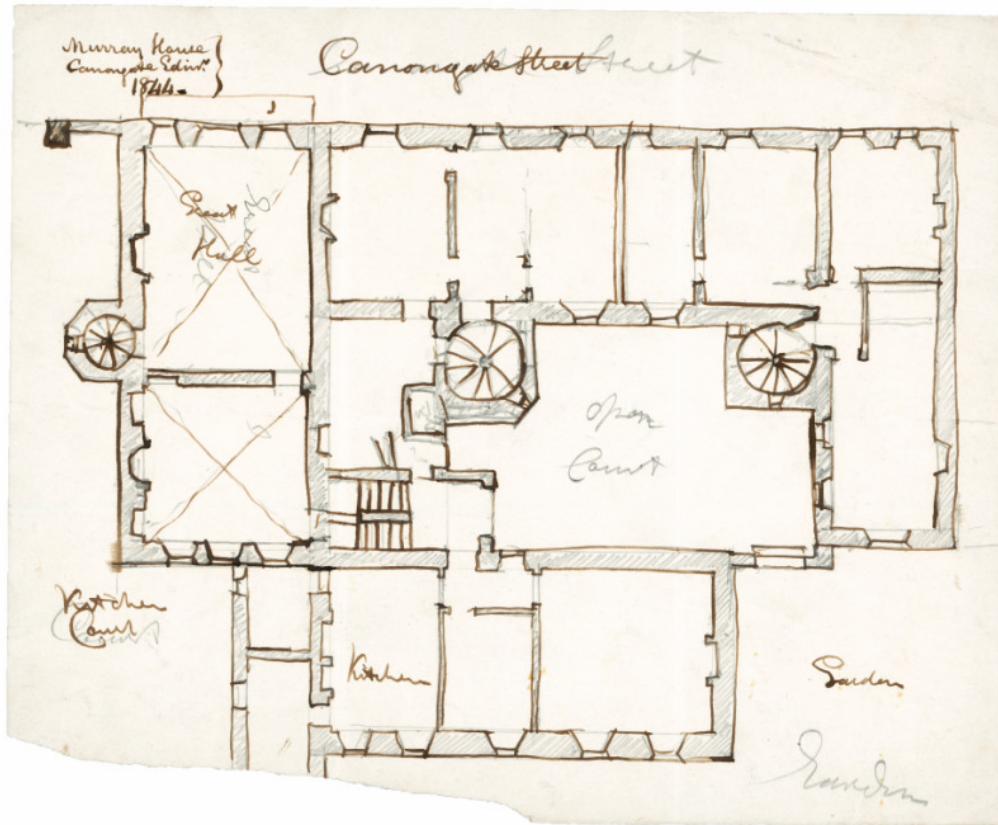 Murray House
Canongate Edinr.
1844.
Canongate Street
Street
Great
Hall
Open
Court
Kitchen
Court
Kitchen
Garden
Garden